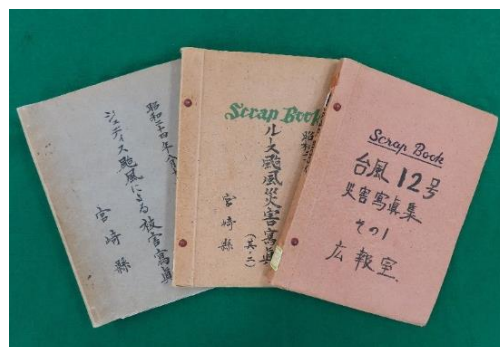 昭和二十四年
ジュディス颱風による被害寫真
宮崎縣
Scrap Book
ルース颱風災害寫真
(其.二)
宮崎縣
Scrap Book
台風12号
災害寫眞集
その1
広報室.